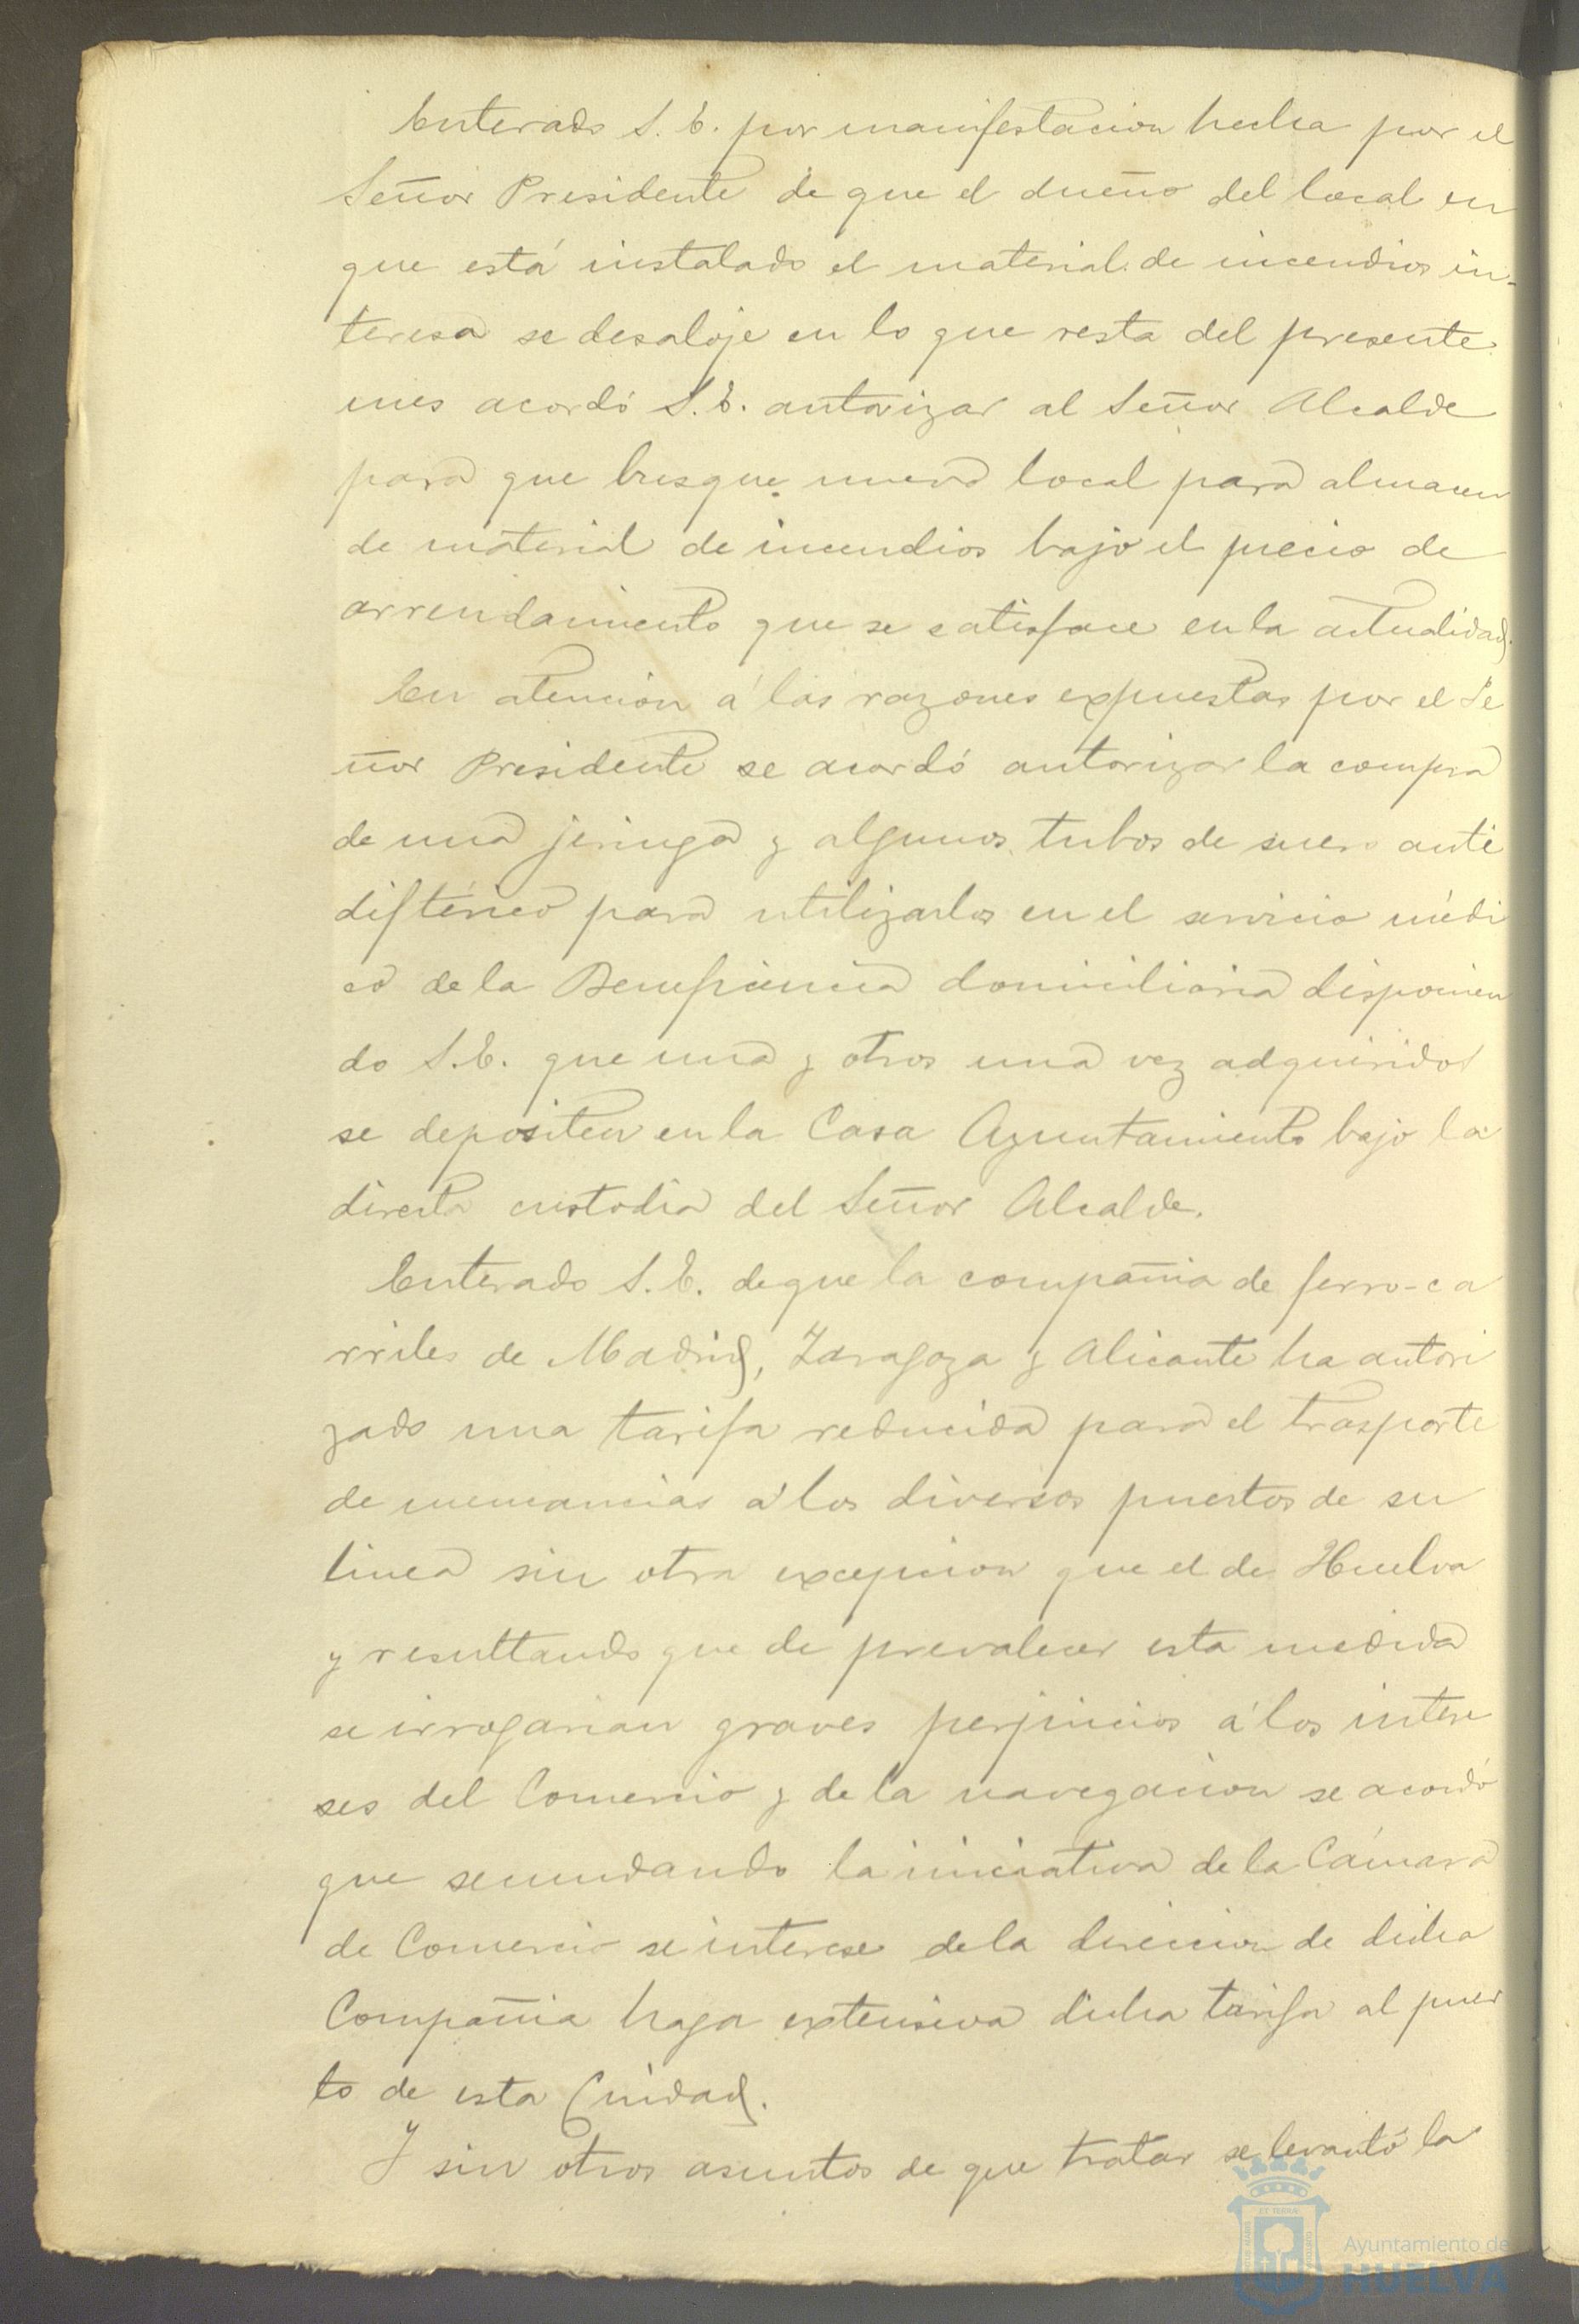 Enterado S. E. por manifestacion hecha por el
Señor Presidente de que el dueño del local en
que está instalado el material de incendios in-
teresa se desaloje en lo que resta del presente
mes acordó S. E. autorizar al Señor Alcalde
para que busque nuevo local para almacen
de material de incendios bajo el precio de
arrendamiento que se satisface en la actualidad.
En atencion á las razones expuestas por el Se
ñor Presidente se acordó autorizar la compra
de una jeringa y algunos tubos de suero anti
diftérico para utilizarlos en el servicio médi
co de la Beneficencia domiciliaria disponien
do S. E. que una y otros una vez adquiridos
se depositen en la Casa Ayuntamiento bajo la
directa custodia del Señor Alcalde.
Enterado S. E. de que la compañia de ferro-ca
rriles de Madrid, Zaragoza y Alicante ha autori
zado una tarifa reducida para el trasporte
de mercancias á los diversos puertos de su
linea sin otra excepcion que el de Huelva
y resultando que de prevalecer esta medida
se irrogarian graves perjuicios á los intere
ses del Comercio y de la navegacion se acordó
que secundando la iniciativa de la Cámara
de Comercio se interese de la direccion de dicha
Compañia haga extensiva dicha tarifa al puer
to de esta Ciudad.
Y sin otros asuntos de que tratar se levantó la
Ayuntamiento de
HUELVA